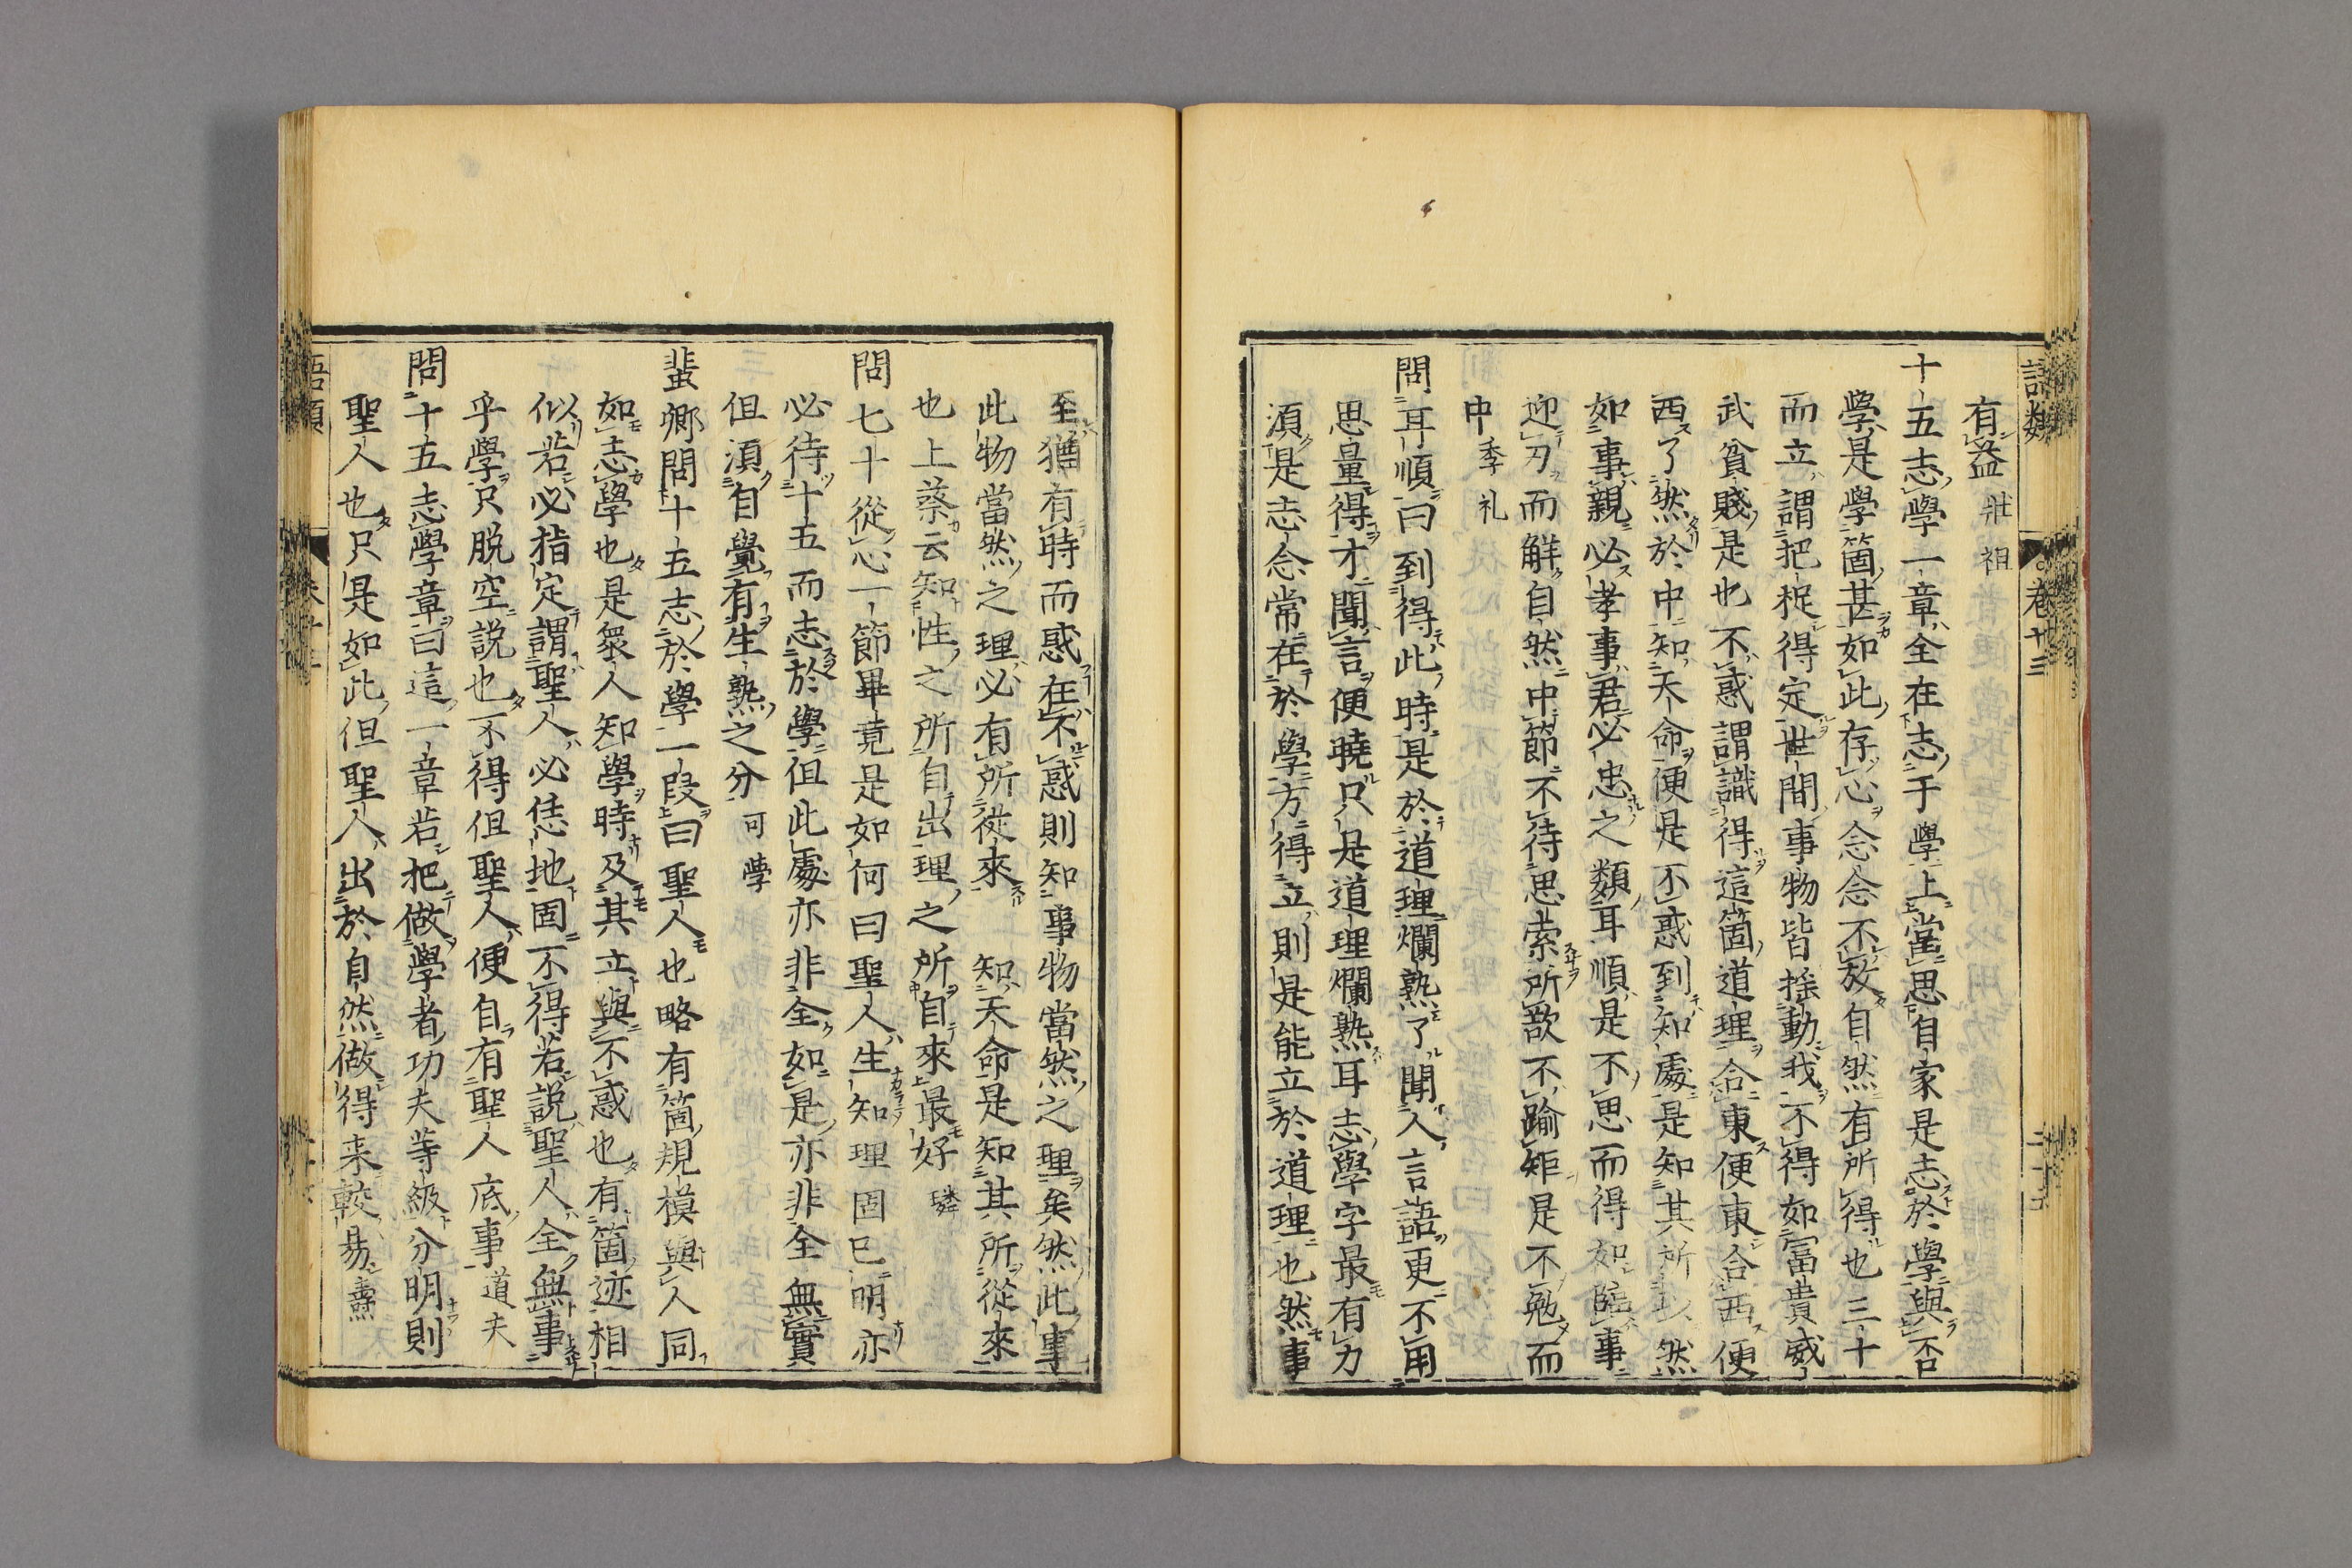 語類
卷廿三
有益 壯祖
十五志學一章全在志于學上當思自家是志於學與否
學是學箇甚如此存心念念不放自然有所得也三十
而立謂把捉得定世間事物皆搖動我不得如富貴威
武貧賤是也不惑謂識得這箇道理合東便東合西便
西了然於中知天命便是不惑到知處是知其所以然
如事親必孝事君必忠之類耳順是不思而得如臨事
迎刃而解自然中節不待思索所欲不踰矩是不勉而
中 季礼
問耳順曰到得此時是於道理爛熟了聞人言語更不用
思量得才聞言便曉只是道理爛熟耳志學字最有力
須是志念常在於學方得立則是能立於道理也然事
至猶有時而惑在不惑則知事物當然之理矣然此事
此物當然之理必有所從來知天命是知其所從來
也上蔡云知性之所自出理之所自來最好 璘
問七十從心一節畢竟是如何曰聖人生知理固已明亦
必待十五而志於學但此處亦非全如是亦非全無實
但須自覺有生熟之分 可學
蜚卿問十五志於學一段曰聖人也略有箇規模與人同
如志學也是衆人知學時及其立與不惑也有箇迹相
似若必指定謂聖人必恁地固不得若說聖人全無事
乎學只脫空説也不得但聖人便自有聖人底事 道夫
問十五志學章曰這一章若把做學者功夫等級分明則
聖人也只是如此但聖人出於自然做得来較易 燾